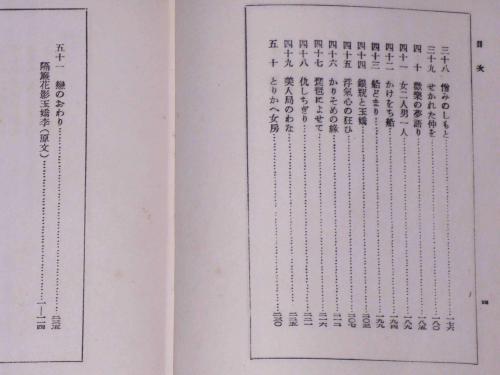 目次
三十八 憎みのしもと 一七六
三十九 せかれた仲を 一八〇
四十 歡樂の夢語り 一八五
四十一 女二人男一人 一八九
四十二 かけをち船 一九四
四十三 船どまり 一九九
四十四 銀瓶と玉嬌 二〇三
四十五 浮氣心の狂ひ 二〇七
四十六 かりそめの縁 二一二
四十七 琵琶によせて 二一六
四十八 仇しちぎり 二二一
四十九 美人局のわな 二二五
五十 とりかへ女房 二三〇
四
五十一 戀のおわり 二三五
隔簾花影玉嬌李(原文) 一―一二四